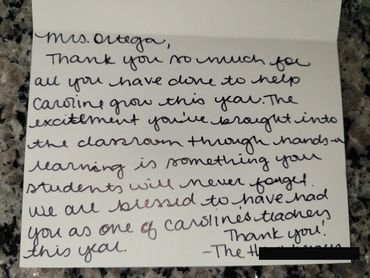 Mrs. Ortega,
Thank you so much for
all you have done to help
Caroline grow this year. The
excitement you've brought into
the classroom through hands-o
learning is something you
students will never forget.
We are blessed to have had
you as one of Carolines teachers
this year. Thank you!
-The H